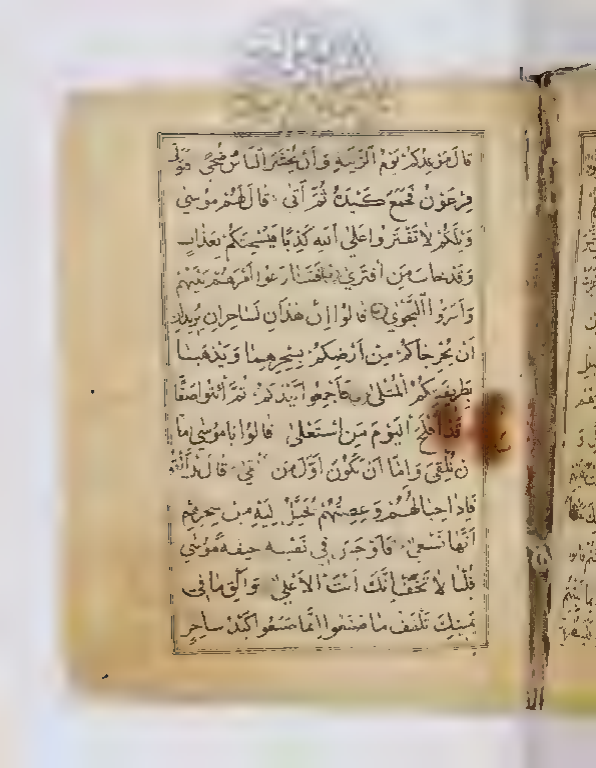 قال موعدكم يوم الزينة وأن يحشر الناس ضحى فتولى
فرعون فجمع كيده ثم أتى قال لهم موسى
ويلكم لا تفتروا على الله كذبا فيسحتكم بعذاب
وقد خاب من افترى فتنازعوا أمرهم بينهم
وأسروا النجوى قالوا إن هذان لساحران يريدان
أن يخرجاكم من أرضكم بسحرهما ويذهبا
بطريقتكم المثلى فأجمعوا كيدكم ثم ائتوا صفا
وقد أفلح اليوم من استعلى قالوا يا موسى إما
أن تلقي وإما أن نكون أول من ألقى قال بل ألقوا
فإذا حبالهم وعصيهم يخيل إليه من سحرهم
أنها تسعى فأوجس في نفسه خيفة موسى
قلنا لا تخف إنك أنت الأعلى وألق ما في
يمينك تلقف ما صنعوا إنما صنعوا كيد ساحر